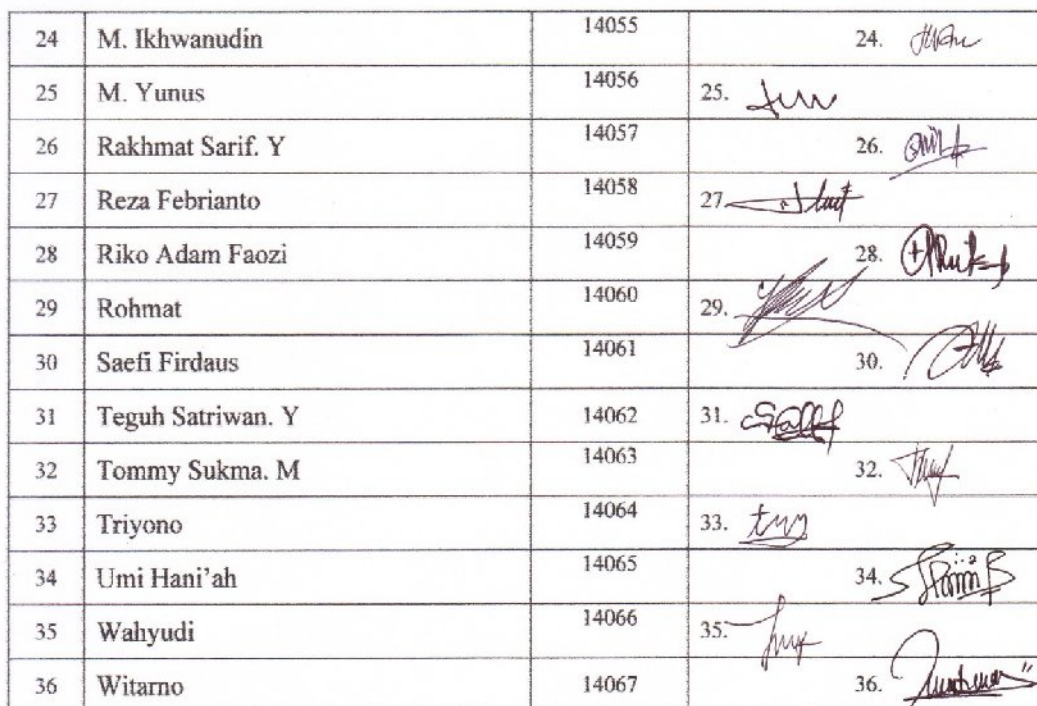 24 M. Ikhwanudin 14055 24.
25 M. Yunus 14056 25.
26 Rakhmat Sarif. Y 14057 26.
27 Reza Febrianto 14058 27
28 Riko Adam Faozi 14059 28.
29 Rohmat 14060 29.
30 Saefi Firdaus 14061 30.
31 Teguh Satriwan. Y 14062 31.
32 Tommy Sukma. M 14063 32.
33 Triyono 14064 33.
34 Umi Hani’ah 14065 34.
35 Wahyudi 14066 35.
36 Witarno 14067 36.